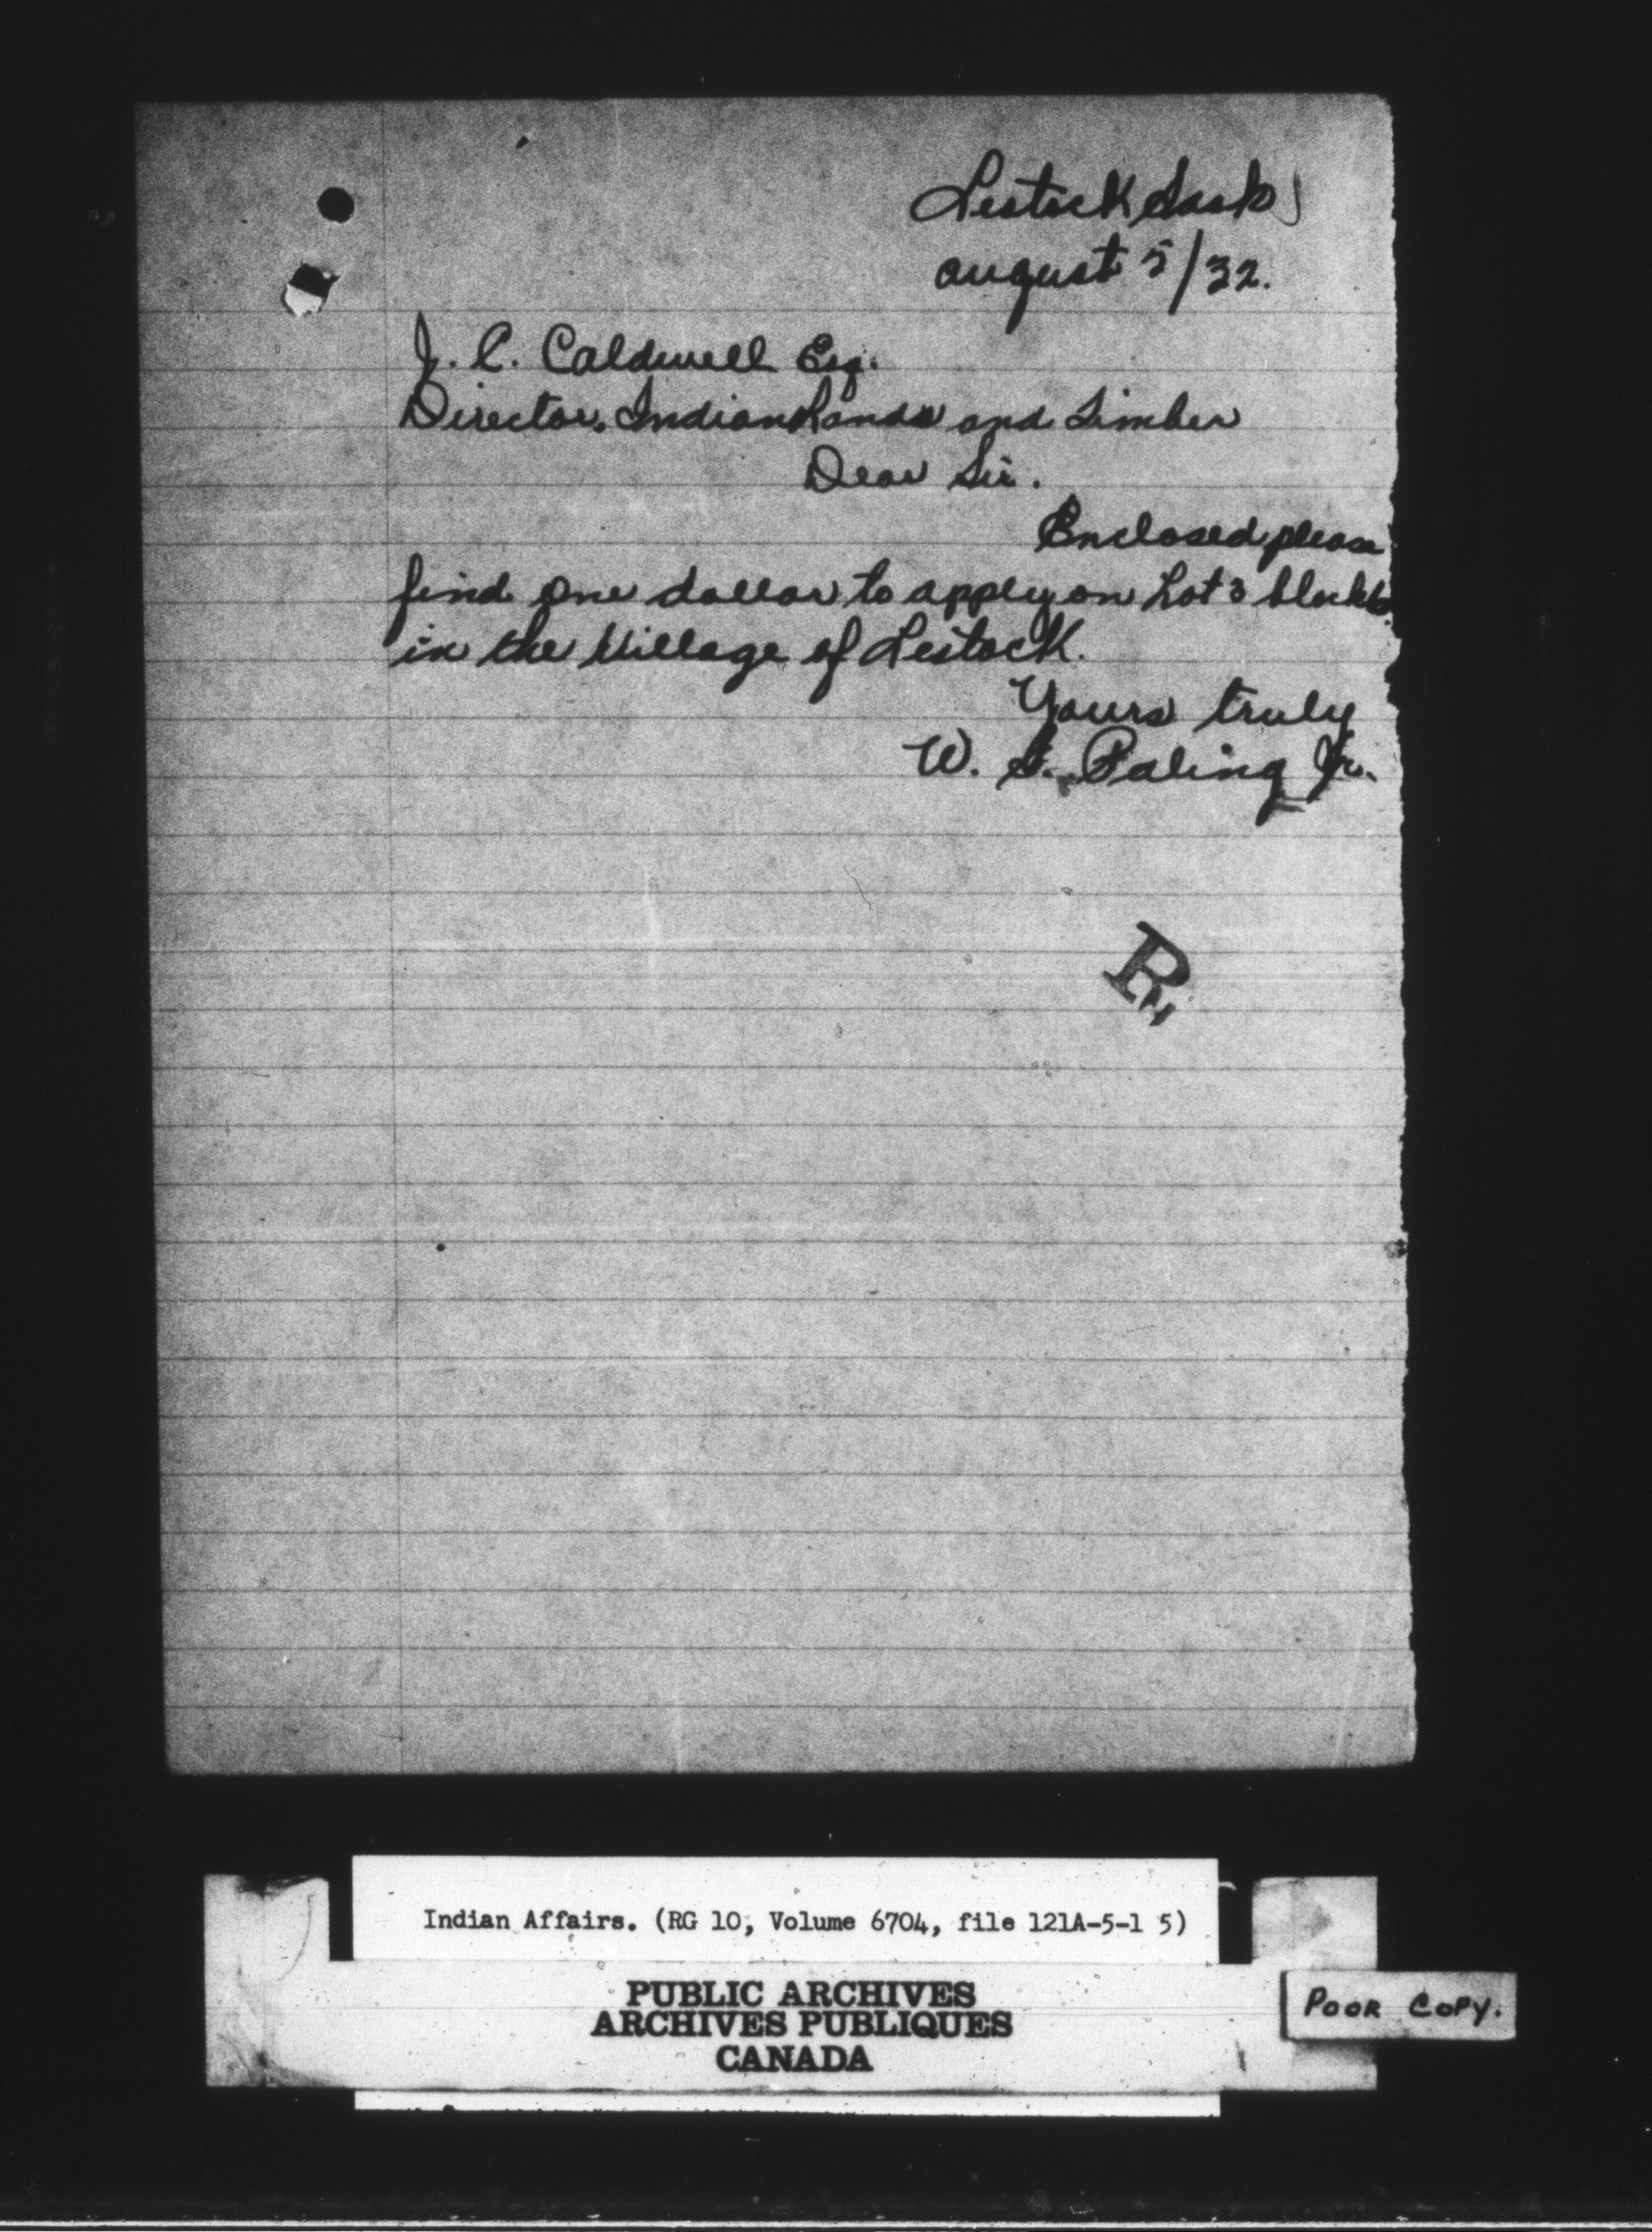 Lestock Sask
august 5/32.
J. C. Caldwell Esq.
Director. Indian Lands and Timber
Dear Sir.
Enclosed please
find one dollar to apply on Lot 3 block
in the Village of Lestock.
Yours truly
W. S. Paling Jr.
R
Indian Affairs. (RG 10, Volume 6704, file 121A-5-1 5)
PUBLIC ARCHIVES
ARCHIVES PUBLIQUES
CANADA
POOR COPY.